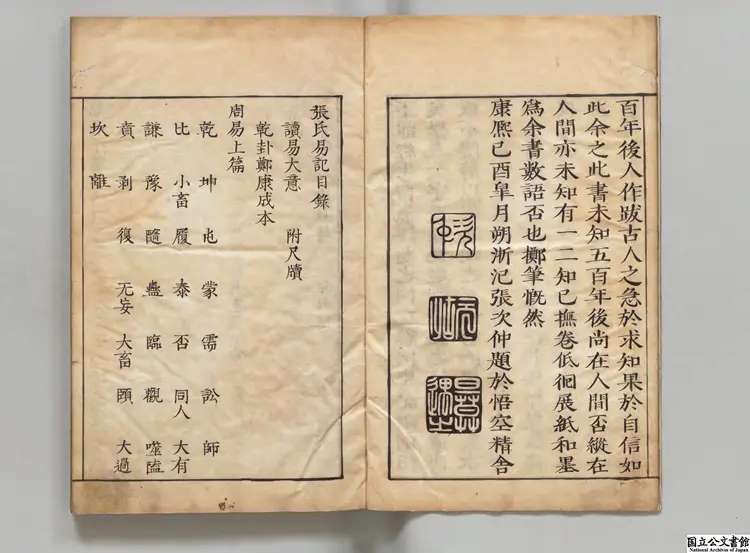 百年後人作跋古人之急於求知果於自信如
此余之此書未知五百年後尚在人間否縱在
人間亦未知有一二知己撫卷低徊展紙和墨
爲余書數語否也擲筆慨然
康熈己酉皐月朔浙汜張次仲題於悟空精舎
張氏易記目錄
讀易大意 附尺牘
乾卦鄭康成本
周易上篇
乾 坤 屯 蒙 需 訟 師
比 小畜 履 泰 否 同人 大有
謙 豫 隨 蠱 臨 觀 噬嗑
賁 剥 復 无妄 大畜 頤 大過
坎 離
国立公文書館
National Archives of Japan